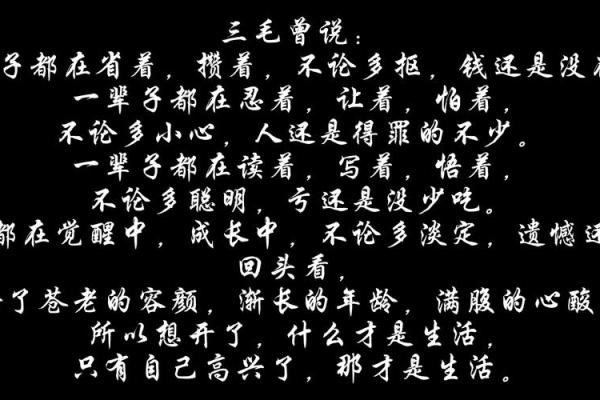 三毛曾说：
子都在省着，攒着，不论多抠，钱还是没
一辈子都在忍着，让着，怕着，
不论多小心，人还是得罪的不少。
一辈子都在读着，写着，悟着，
不论多聪明，亏还是没少吃。
都在觉醒中，成长中，不论多淡定，遗憾还
回头看，
了苍老的容颜，渐长的年龄，满腹的心酸
所以想开了，什么才是生活，
只有自己高兴了，那才是生活。